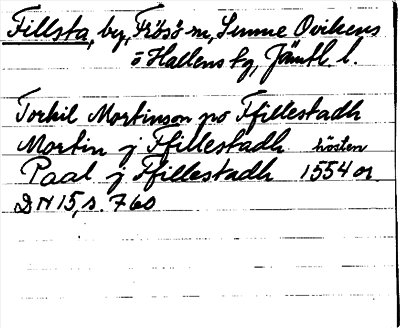 Fillsta, by, Frösö sn, Sunne Ovikens
o Hallens tg, Jämtl. l.
Torkil Mortinson po Ffillestadh
Mortin j Ffillestadh hösten
Paal j Ffillestadh 1554 or.
DN 15, s. 760